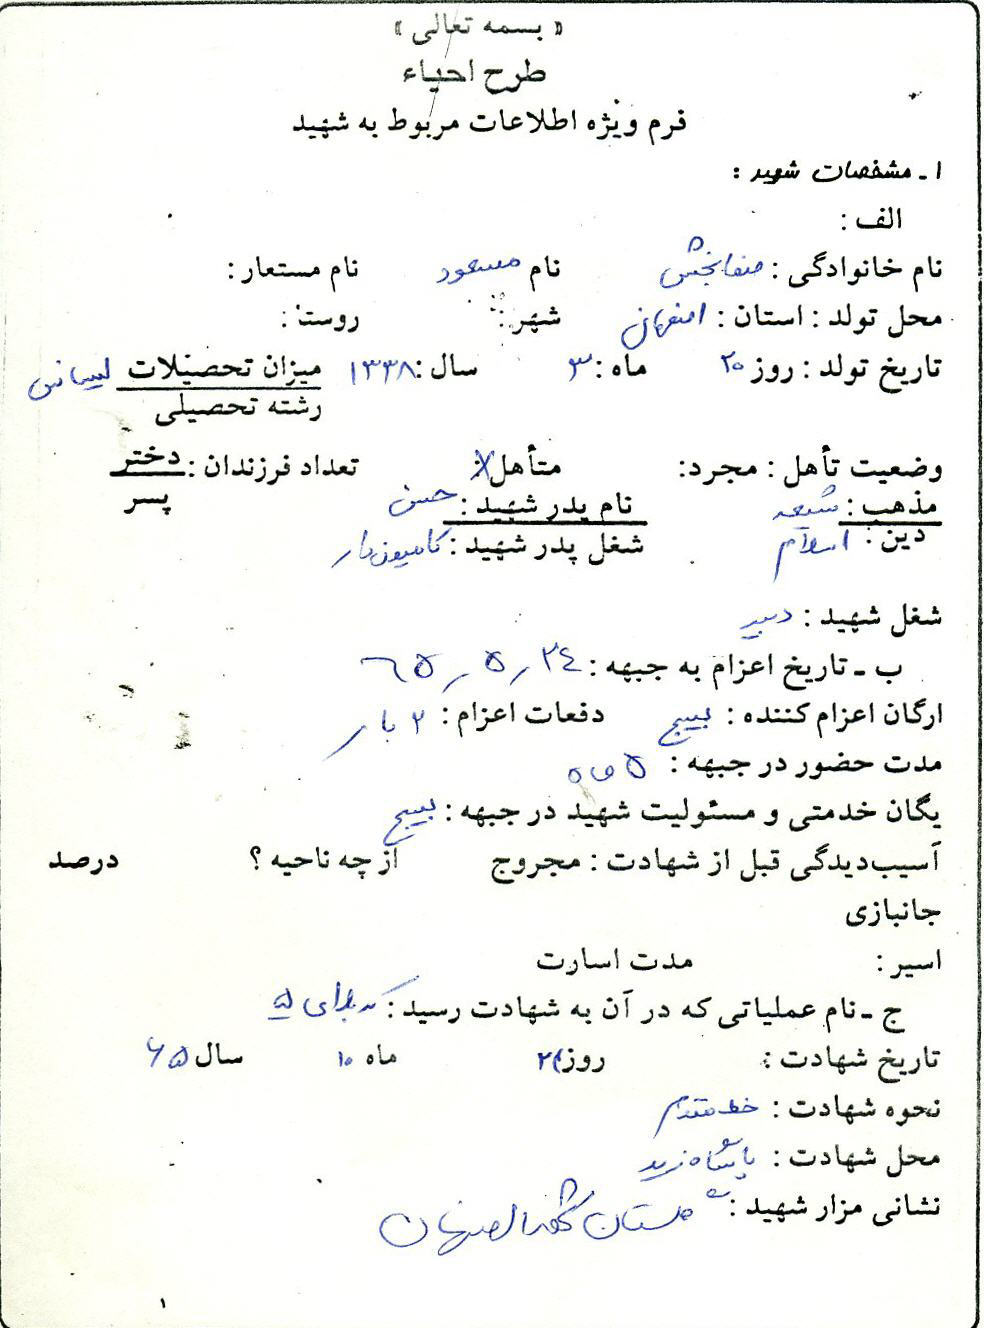 « بسمه تعالی »
طرح احیاء
فرم ویژه اطلاعات مربوط به شهید
۱ ـ مشخصات شهید :
الف :
نام خانوادگی : صفابخش نام مسعود نام مستعار :
محل تولد : استان : اصفهان شهر : روستا :
تاریخ تولد : روز ۲۰ ماه : ۳ سال : ۱۳۳۸ میزان تحصیلات لیسانس
رشته تحصیلی
وضعیت تأهل : مجرد : متأهل : X تعداد فرزندان : دختر
پسر
مذهب : شیعه نام پدر شهید : حسن
دین : اسلام شغل پدر شهید : کامیون‌دار
شغل شهید : دبیر
ب ـ تاریخ اعزام به جبهه : ۲۴ ر ۵ ر ۶۵
ارگان اعزام کننده : بسیج دفعات اعزام : ۲ بار
مدت حضور در جبهه : ۵ ماه
یگان خدمتی و مسئولیت شهید در جبهه : بسیج
آسیب‌دیدگی قبل از شهادت : مجروح از چه ناحیه ؟ درصد
جانبازی
اسیر : مدت اسارت
ج ـ نام عملیاتی که در آن به شهادت رسید : کربلای ۵
تاریخ شهادت : روز ماه ۱۰ سال ۶۵
نحوه شهادت : خط مقدم
محل شهادت : پاسگاه زید
نشانی مزار شهید : گلستان شهدا اصفهان
۱